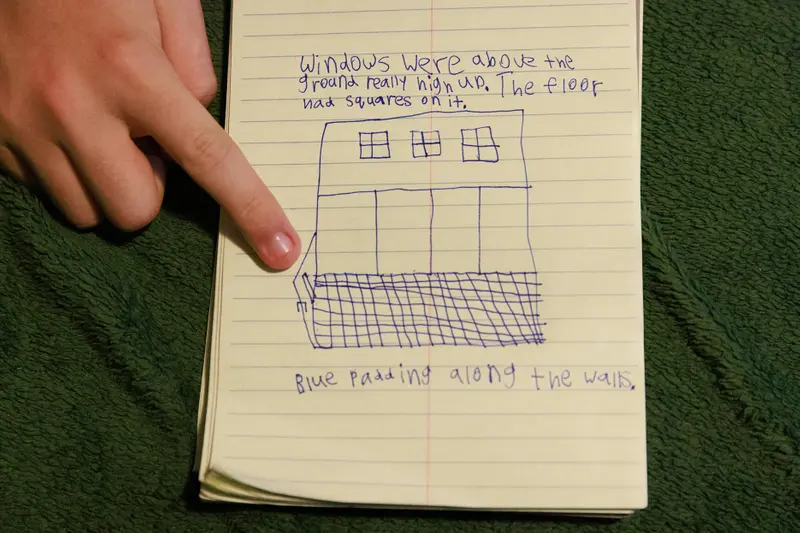 Windows were above the
ground really high up. The floor
had squares on it.
Blue Padding along the walls.